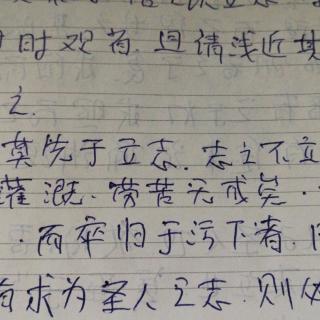 时观省.且请浅近其
之.
莫先于立志.志之不立
灌溉.劳苦无成矣.
.而卒归于污下者.
有求为圣人之志.则